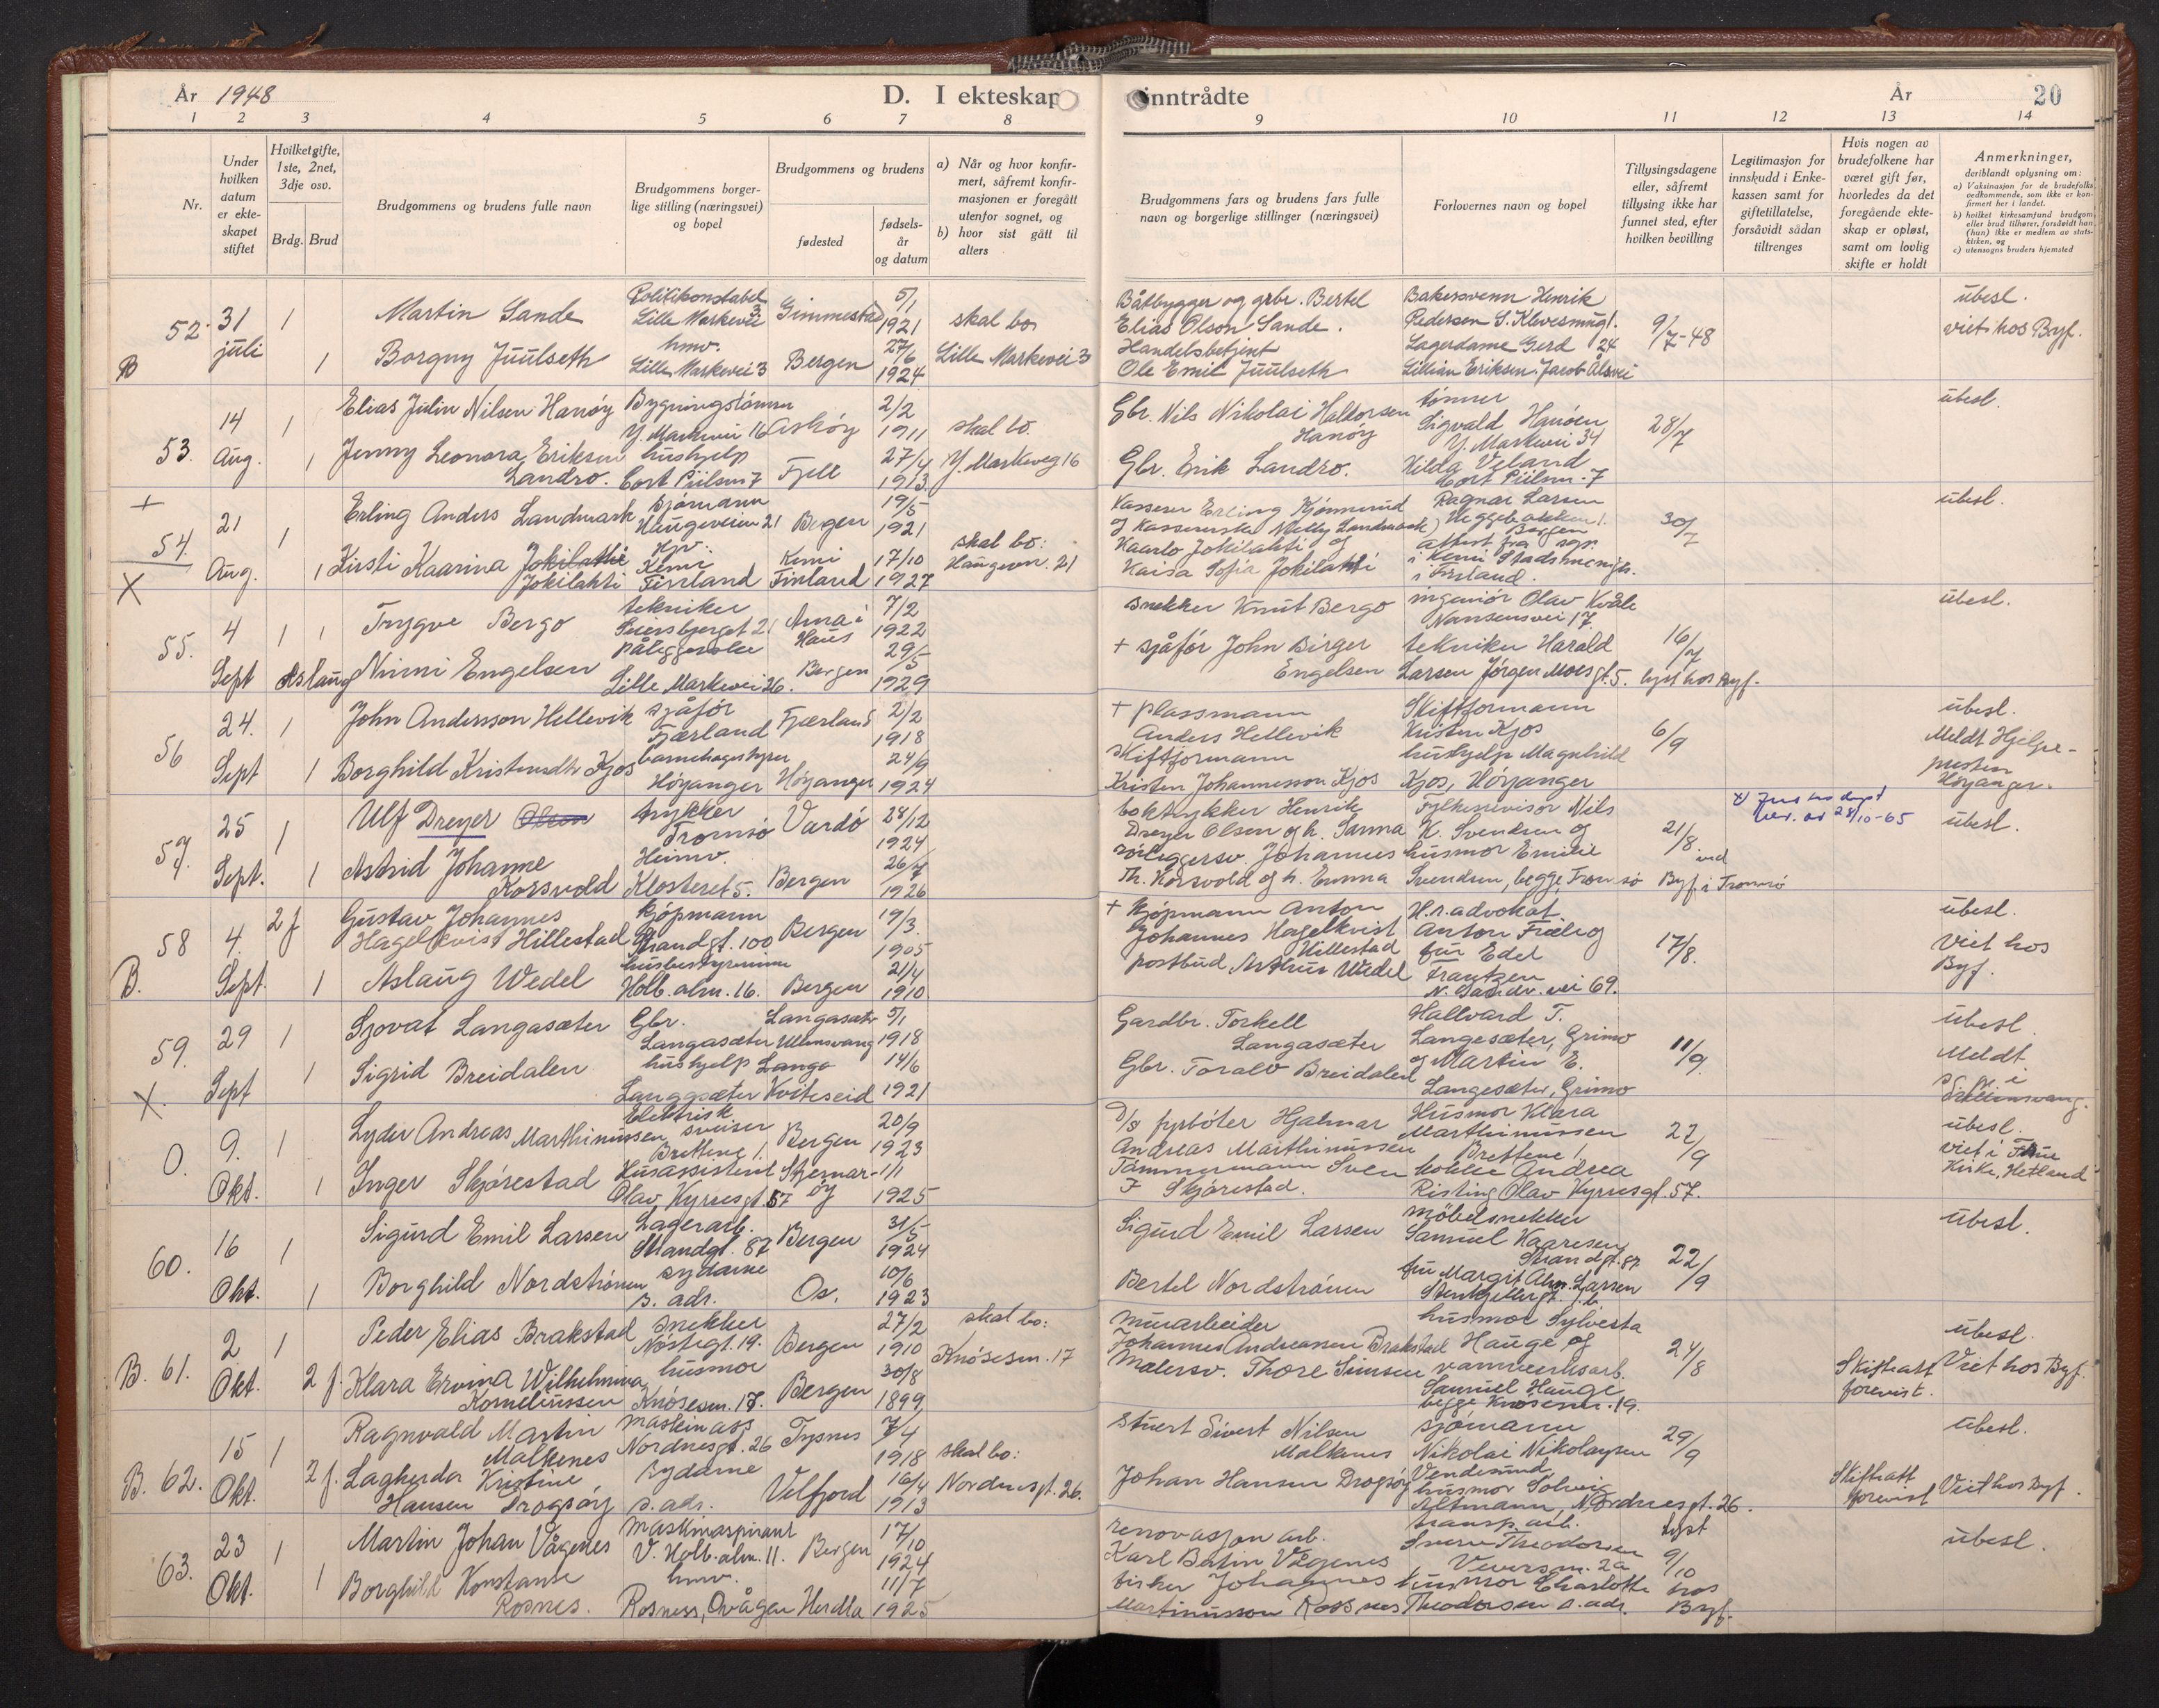 År 1948
D. I ekteskap
inntrådte
År
20
1 2 3 4 5 6 7 8 9 10 11 12 13 14
Nr.
Under hvilken datum er ekteskapet stiftet
Hvilket gifte, 1ste, 2net, 3dje osv.
Brdg. Brud
Brudgommens og brudens fulle navn
Brudgommens borgerlige stilling (næringsvei) og bopel
Brudgommens og brudens
fødested
fødselsår og datum
a) Når og hvor konfirmert, såfremt konfirmasjonen er foregått utenfor sognet, og
b) hvor sist gått til alters
Brudgommens fars og brudens fars fulle navn og borgerlige stillinger (næringsvei)
Forlovernes navn og bopel
Tillysingsdagene eller, såfremt tillysing ikke har funnet sted, efter hvilken bevilling
Legitimasjon for innskudd i Enkekassen samt for giftetillatelse, forsåvidt sådan tiltrenges
Hvis nogen av brudefolkene har været gift før, hvorledes da det foregående ekteskap er opløst, samt om lovlig skifte er holdt
Anmerkninger, deriblandt oplysning om:
a) Vaksinasjon for de brudefolks vedkommende, som ikke er konfirmert her i landet.
b) hvilket kirkesamfund brudgom eller brud tilhører, forsåvidt han (hun) ikke er medlem av statskirken, og
c) utensogns bruders hjemsted
52 31 juli 1 Martin Sande Politikonstabel Lille Markevei 3 Gimmestad 5/1 1921 skal bo
Båtbygger og grbr. Bertel Elias Olson Sande. Bakersvenn Henrik Pedersen 9/7-48 ubesl.
B 1 Borguy Juulseth hmv. Lille Markevei 3 Bergen 27/6 1924 Lille Markevei 3
Handelsbetjent Ole Emil Juulseth Lagerdame Gerd Lillian Eriksen, Jacob Ålsvei viet hos Byf.
53. 14 Aug. 1 Elias Julin Nilsen Hanøy Y. Markevei 16 Askøy 2/2 1911 skal bo.
Gbr. Nils Nikolai Haldorsen Hanøy tømmer Sigvald Hanøen Y. Markevei 34 28/7 ubesl.
1 Jenny Leonora Eriksen Landro. hushjelp Cort Piilsm 7 Fjell 27/4 1913 Y. Markeveg 16
Gbr. Erik Landro. Hilda Veland Cort Piilsm. 7
+
54. 21 Aug. 1 Erling Anders Landmark Sjømann Haugeveien 21 Bergen 19/5 1921 skal bo:
Kasserer Erling Kjønnerud og Kassererske Nelly Landmark Ragnar Larsen Heggebakken 1. Bergen 30/7 ubesl.
X 1 Kirsti Kaarina Jokilathi Jokilahti Kemi Finland Kemi Finland 17/10 1927 Haugevn. 21
Kaarlo Jokilahti og Kaisa Sofia Jokilahti attest fra sgp. i Kemi Stadsmenigh. i Finland.
55. 4 Sept 1 1 Trygve Bergo tekniker Arna i Haus 7/2 1922
snekker Knut Bergo ingeniør Olav Kvåle Nansensvei 17. 16/7 ubesl.
Aslaug Ninni Engelsen påleggerske Lille Markevei 26. Bergen 29/5 1929
+ sjåfør John Birger Engelsen tekniker Harald Larsen Jørgen Moesgt. 5. lyst hos Byf.
56 24. Sept 1 John Andersson Hellevik sjåfør Fjærland Fjærland 2/2 1918
+ plassmann Anders Hellevik Skiftformann Kristen Kjos 6/9 ubesl.
1 Borghild Kristensdtr Kjos Høyanger Høyanger 24/9 1924
skiftformann Kristen Johannesson Kjos hushjelp Magnhild Kjos, Høyanger Meldt Hjelpepresten Høyanger.
57. 25 Sept. 1 Ulf Dreyer Olsen trykker Tromsø Vardø 28/12 1924
boktrykker Henrik Dreyer Olsen og h. Sanna Fylkesrevisor Nils K. Svendsen og 21/8. 28/10-65 ubesl.
1 Astrid Johanne Korsvold Heimv. Klosteret 5. Bergen 26/7 1926
rørleggersv. Johannes Th. Korsvold og h. Emma husmor Emilie Svendsen, begge Tromsø ved Byf. i Tromsø
58 4. Sept. 2 f Gustav Johannes Hagelkvist Hillestad Kjøpmann Strandgt. 100 Bergen 19/3. 1905
+ Kjøpmann Anton Johannes Hagelkvist Hillestad H.r.advokat Anton 17/8. ubesl.
B. 1 Aslaug Wedel husbestyrerinne Holb. alm. 16. Bergen 21/4 1910
postbud, Arthur Wedel fru Edel Frantzen 69. Viet hos Byf.
59. 29 Sept 1 Sjovat Langasæter Gbr. Langasæter Langasæter Ullensvang 5/1 1918
Gardbr. Torkell Langasæter Hallvard T. Langesæter, Grimo 11/9. ubesl.
X. 1 Sigrid Breidalen hushjelp Langasæter Kviteseid 14/6 1921
Gbr. Toralv Breidalen og Martin E. Langesæter, Grimo Meldt
0. 9. Okt. 1 Lyder Andreas Marthinussen Elektrisk sveiser Bergen 20/9 1923
D/s fyrbøter Hjalmar Andreas Marthinussen Husmor Klara Marthinussen 27/9 ubesl.
1 Inger Skjørestad Husassistent Olav Kyrresgt. 57 1/1 1925
Tømmermann Sven Skjørestad. Andrea Risting Olav Kyrresgt. 57. viet i Frue Kirke, Hetland
60. 16 Okt. 1 Sigurd Emil Larsen Lagerarb. Strandgt. 87 Bergen 31/5 1924
Sigurd Emil Larsen møbelsnekker Samuel Kaaresen Strandgt. 87 22/9 ubesl.
1 Borghild Nordstrønen sydame s. adr. Os. 10/6 1923
Bertel Nordstrønen fru Margit Larsen
B. 61. 2 Okt. 1 Peder Elias Brakstad snekker Nøstegt. 19. Bergen 27/2 1910 skal bo:
Murarbeider Johannes Andreasen Brakstad husmor Sylvesta Hauge og 24/8 ubesl.
2 f. Klara Ervina Wilhelmina Korneliussen husmor Knøsesm. 17. Bergen 30/8 1899 Knøsesm. 17
Malersv. Thore Simsen vannverksarb. Samuel Hauge begge Knøsesm. 19. Skifteatt forevist. Viet hos Byf.
B. 62. 15 Okt. 1 Ragnvald Martin Malkenes maskinass Nordnesgt. 26 Tysnes 7/4 1918 skal bo:
Stuert Sivert Nilsen Malkenes sjømann Nikolai Nikolaysen 29/9 ubesl.
2 f. Lagherdor Kristine Hansen Drogsøy sydame s. adr. Velfjord 16/4 1913 Nordnesgt. 26.
Johan Hansen Drogsøy husmor Solveig Altmann, Nordnesgt. 26. Skifteatt forevist Viet hos Byf.
63. 23 Okt. 1 Martin Johan Vågenes maskinaspirant V. Holb. alm. 11. Bergen 17/10 1924
renovasjon arb. Karl Batin Vågenes transp. arb. Sverre Theodorsen Veversm. 2a Lyst 9/10 ubesl.
1 Borghild Konstanse Rosnes. hmv. Rosnes, Ovågen Herdla 11/7 1925
fisker Johannes Martinusson Rossnes husmor Charlotte Theodorsen s. adr. hos Byf.